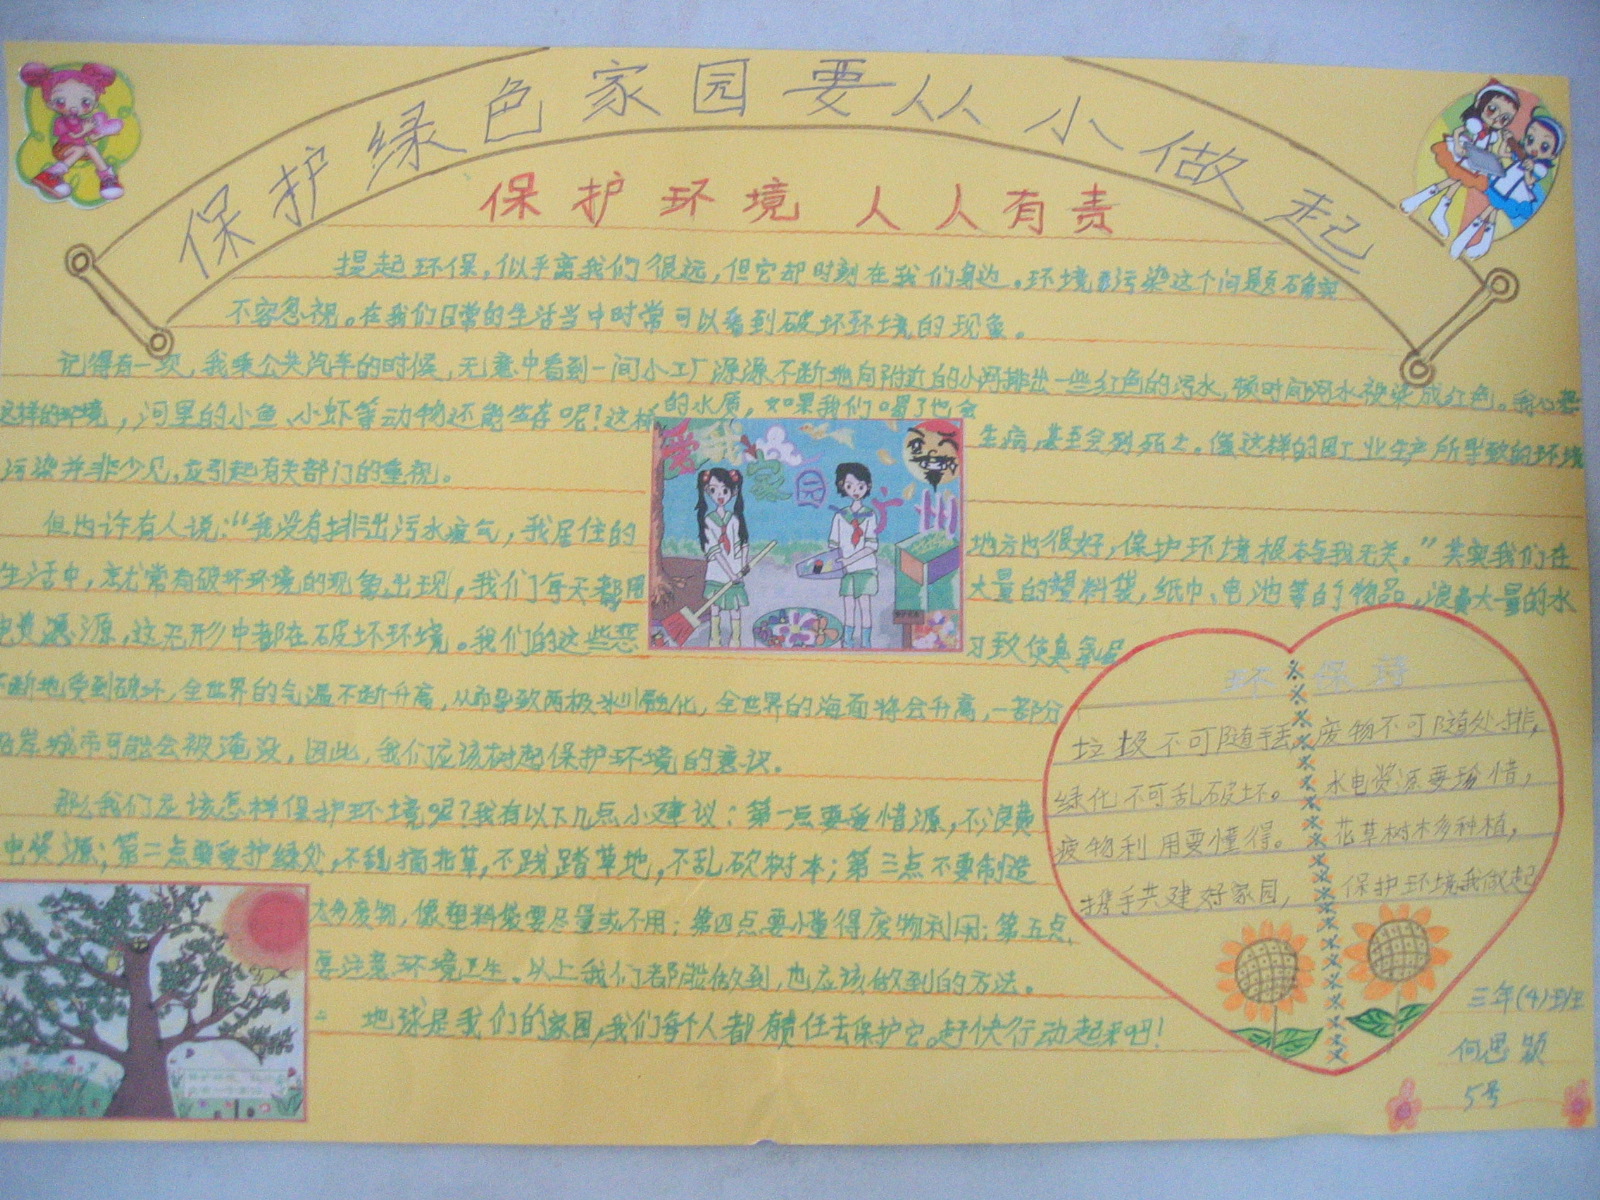 保护绿色家园要从小做起
保护环境 人人有责
提起环保，似乎离我们很远，但它却时刻在我们身边。环境污染这个问题确实
不容忽视。在我们日常的生活当中时常可以看到破坏环境的现象。
记得有一次，我乘公共汽车的时候，无意中看到一间小工厂源源不断地向附近的小河排出一些红色的污水，顿时间河水被染成红色。我心想
这样的环境，河里的小鱼、小虾等动物还能生存呢？这样的水质，如果我们喝了也会
生病，甚至会到死亡。像这样的因工业生产所导致的环境
污染并非少见，应引起有关部门的重视。
但也许有人说：“我没有排出污水废气，我居住的
地方也很好，保护环境根本与我无关。”其实我们在
生活中，就常有破坏环境的现象出现。我们每天都用
大量的塑料袋，纸巾、电池等的物品，浪费大量的水
电资源源，这无形中都在破坏环境。我们的这些恶
习致使臭氧层
不断地受到破坏，全世界的气温不断升高，从而导致两极冰川融化，全世界的海面将会升高，一部分
沿岸城市可能会被淹没，因此，我们应该树起保护环境的意识。
那么我们应该怎样保护环境呢？我有以下几点小建议：第一点要爱惜源，不浪费
电资源；第二点要爱护绿处，不乱摘花草，不践踏草地，不乱砍树本；第三点不要制造
太多废物，像塑料袋要尽量或不用；第四点要懂得废物利用；第五点，
要注意环境卫生。以上我们都能做到，也应该做到的方法。
地球是我们的家园，我们每个人都有责任去保护它。赶快行动起来吧！
爱我家园
广州
环保诗
垃圾不可随手丢，废物不可随处排，
绿化不可乱破坏。水电资源要珍惜，
废物利用要懂得。花草树木多种植，
携手共建好家园，保护环境我做起
三年(4)班
何思颖
5号